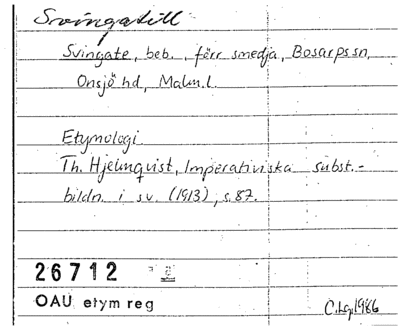 Svingatill
Svingate, beb., förr smedja, Bosarps sn,
Onsjö hd, Malm.l.
Etymologi
Th. Hjelmqvist, Imperativiska subst.-
bildn. i sv. (1913), s.87.
26712
OAU etym reg
1986